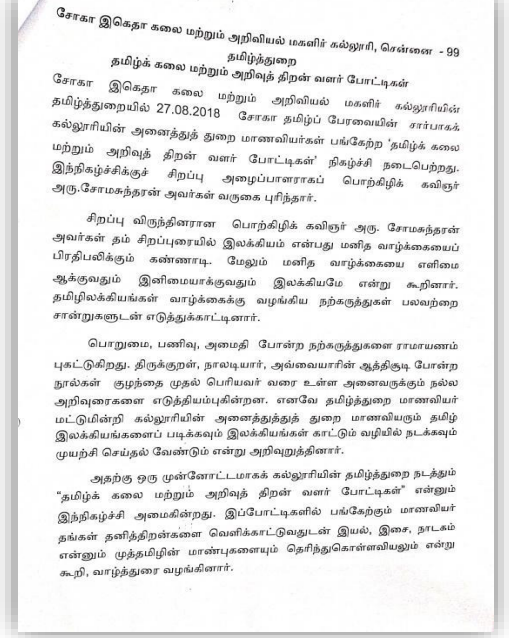 சோகா இகெதா கலை மற்றும் அறிவியல் மகளிர் கல்லூரி, சென்னை - 99
தமிழ்த்துறை
தமிழ்க் கலை மற்றும் அறிவுத் திறன் வளர் போட்டிகள்
சோகா இகெதா கலை மற்றும் அறிவியல் மகளிர் கல்லூரியின்
தமிழ்த்துறையில் 27.08.2018 சோகா தமிழ்ப் பேரவையின் சார்பாகக்
கல்லூரியின் அனைத்துத் துறை மாணவியர்கள் பங்கேற்ற 'தமிழ்க் கலை
மற்றும் அறிவுத் திறன் வளர் போட்டிகள்' நிகழ்ச்சி நடைபெற்றது.
இந்நிகழ்ச்சிக்குச் சிறப்பு அழைப்பாளராகப் பொற்கிழிக் கவிஞர்
அரு.சோமசுந்தரன் அவர்கள் வருகை புரிந்தார்.
சிறப்பு விருந்தினரான பொற்கிழிக் கவிஞர் அரு. சோமசுந்தரன்
அவர்கள் தம் சிறப்புரையில் இலக்கியம் என்பது மனித வாழ்க்கையைப்
பிரதிபலிக்கும் கண்ணாடி. மேலும் மனித வாழ்க்கையை எளிமை
ஆக்குவதும் இனிமையாக்குவதும் இலக்கியமே என்று கூறினார்.
தமிழிலக்கியங்கள் வாழ்க்கைக்கு வழங்கிய நற்கருத்துகள் பலவற்றை
சான்றுகளுடன் எடுத்துக்காட்டினார்.
பொறுமை, பணிவு, அமைதி போன்ற நற்கருத்துகளை ராமாயணம்
புகட்டுகிறது. திருக்குறள், நாலடியார், அவ்வையாரின் ஆத்திசூடி போன்ற
நூல்கள் குழந்தை முதல் பெரியவர் வரை உள்ள அனைவருக்கும் நல்ல
அறிவுரைகளை எடுத்தியம்புகின்றன. எனவே தமிழ்த்துறை மாணவியர்
மட்டுமின்றி கல்லூரியின் அனைத்துத்துத் துறை மாணவியரும் தமிழ்
இலக்கியங்களைப் படிக்கவும் இலக்கியங்கள் காட்டும் வழியில் நடக்கவும்
முயற்சி செய்தல் வேண்டும் என்று அறிவுறுத்தினார்.
அதற்கு ஒரு முன்னோட்டமாகக் கல்லூரியின் தமிழ்த்துறை நடத்தும்
“தமிழ்க் கலை மற்றும் அறிவுத் திறன் வளர் போட்டிகள்” என்னும்
இந்நிகழ்ச்சி அமைகின்றது. இப்போட்டிகளில் பங்கேற்கும் மாணவியர்
தங்கள் தனித்திறன்களை வெளிக்காட்டுவதுடன் இயல், இசை, நாடகம்
என்னும் முத்தமிழின் மாண்புகளையும் தெரிந்துகொள்ளவியலும் என்று
கூறி, வாழ்த்துரை வழங்கினார்.